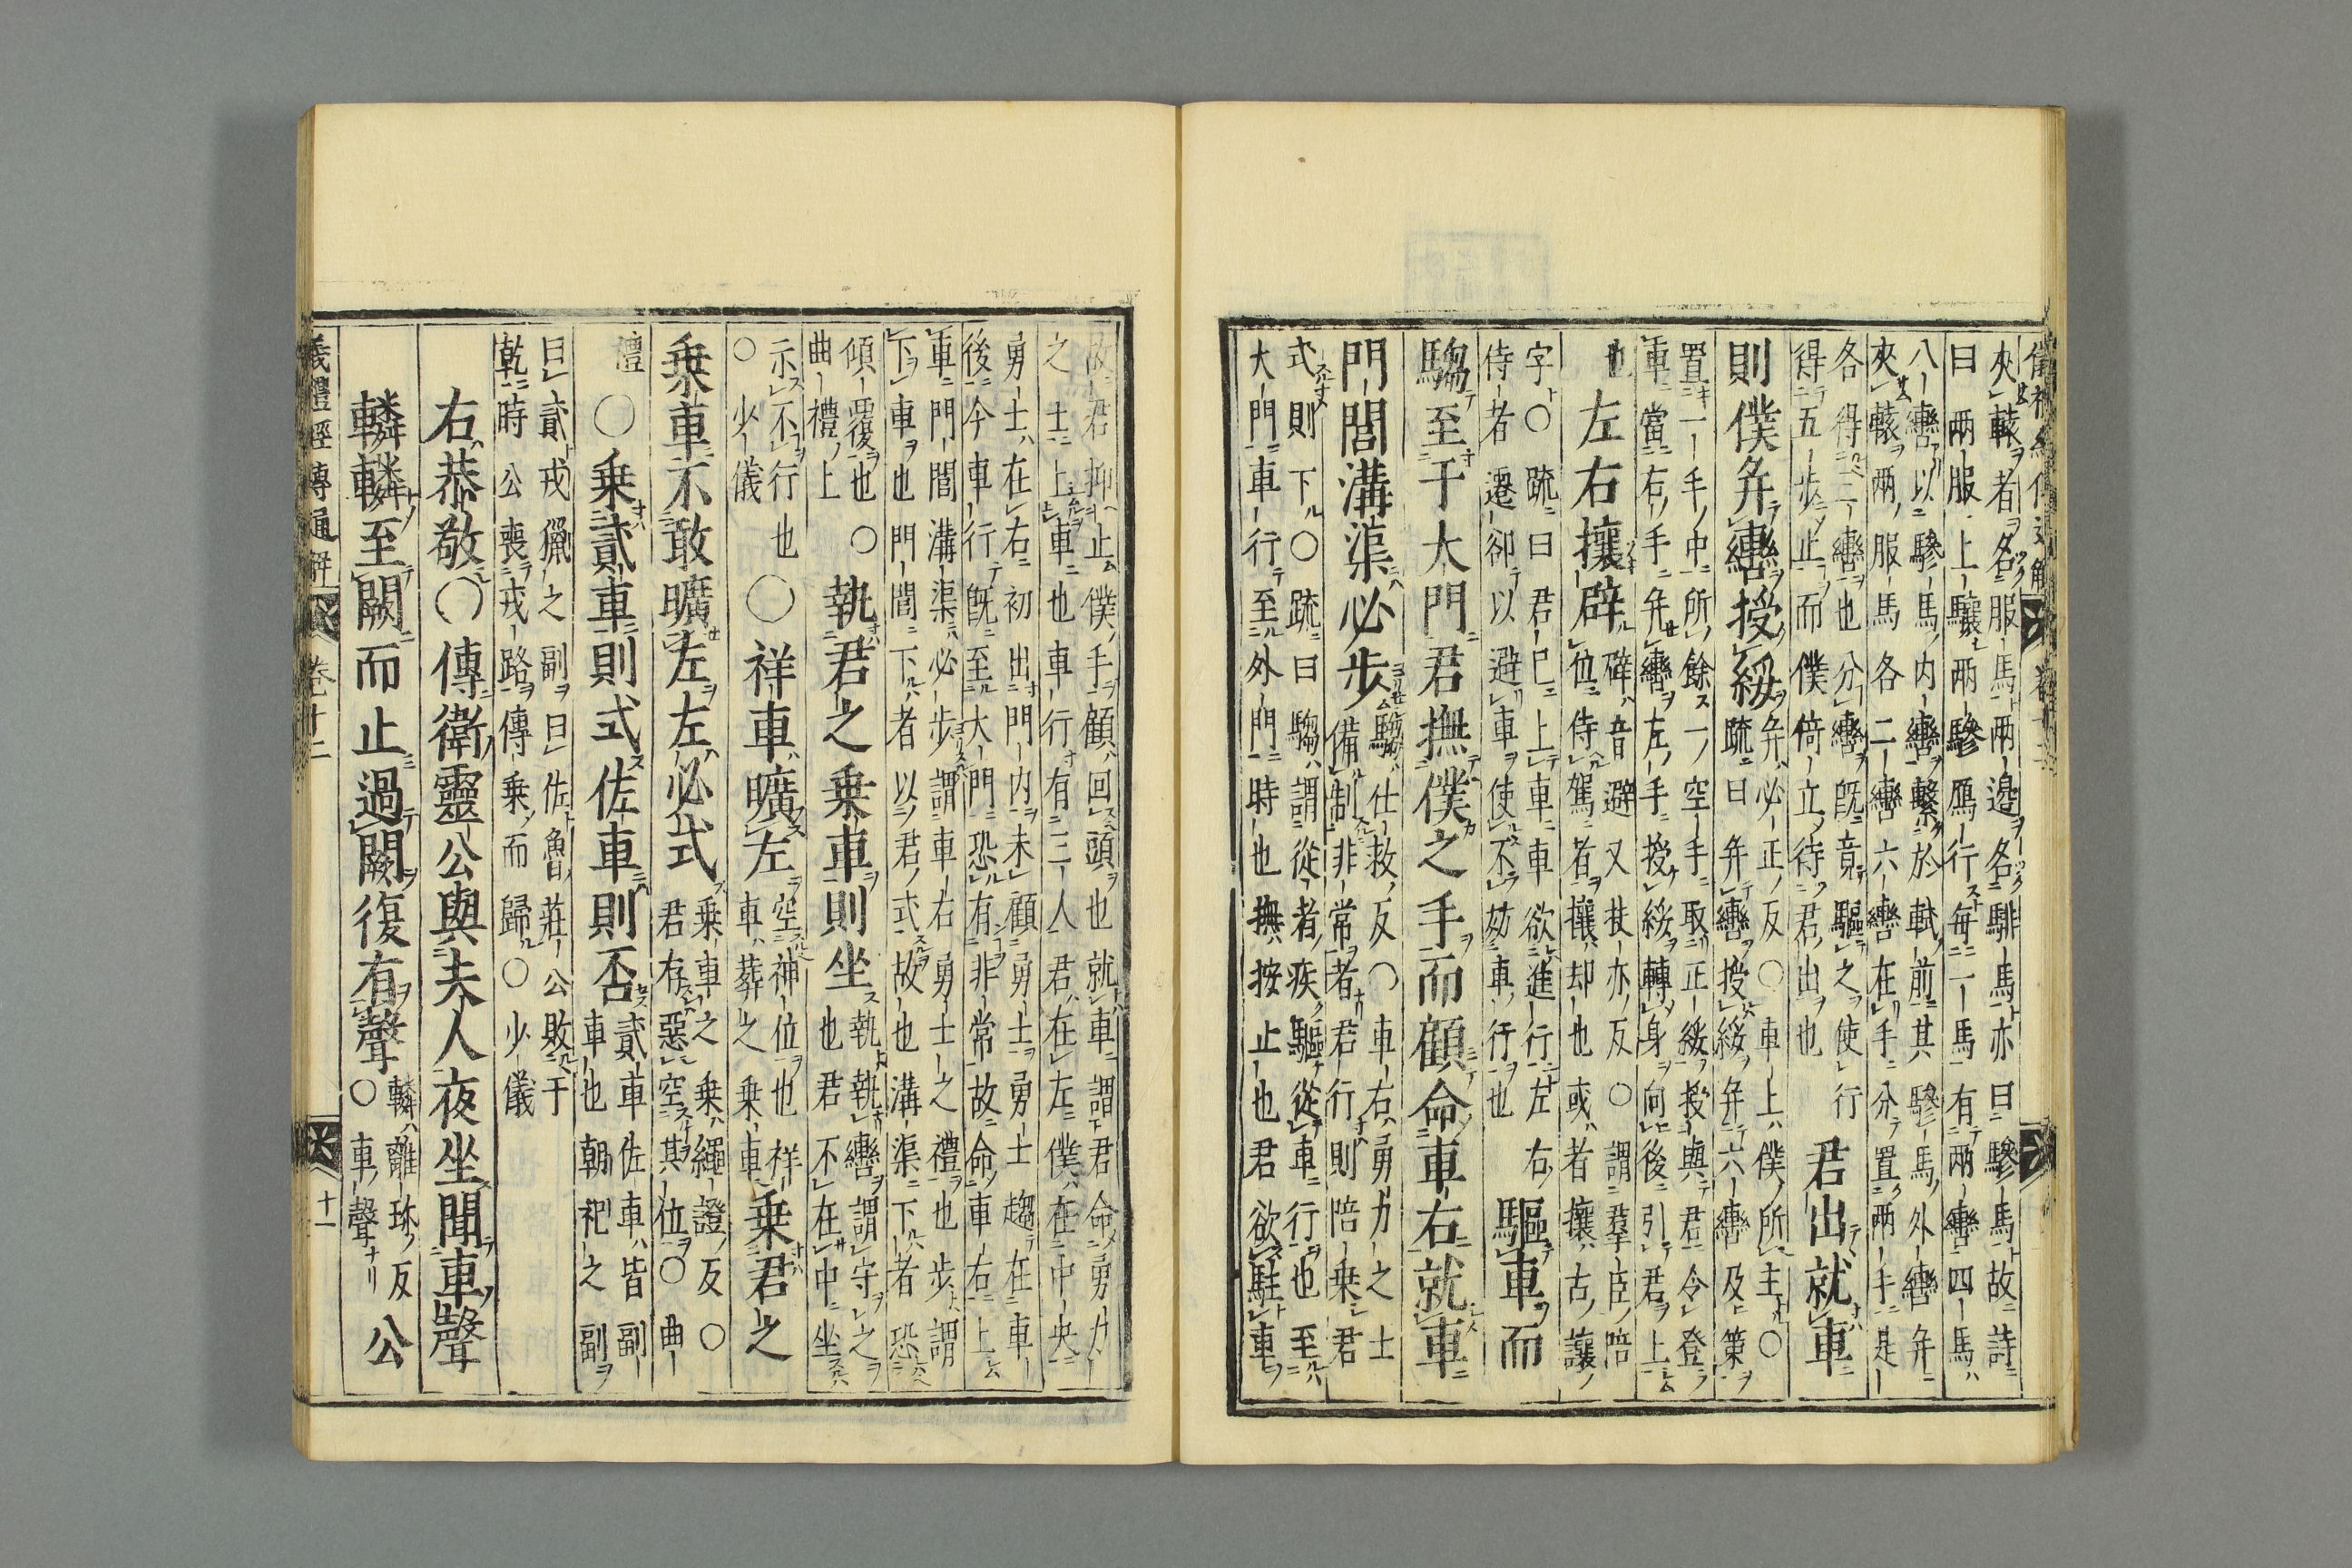 夾轅者名服馬兩邊名騑馬亦曰驂馬故詩
曰兩服上驤兩驂鴈行每一馬有兩轡四馬
八轡以驂馬内轡繫於軾前其驂馬外轡并
夾轅兩服馬各二轡六轡在手分置兩手是
各得三轡也分轡既竟驅之使行
得五步止而僕倚立待君出也
君出就車
則僕并轡授綏
并必正反〇車上僕所主〇
疏曰并轡授綏并六轡及策
置一手中所餘一空手取正綏授與君令登
車當右手并轡左手授綏轉身向後引君上
也
左右攘辟
辟音避又扶亦反〇謂羣臣陪
位侍駕者攘却也或者攘古讓
字〇疏曰君已上車車欲進行左右
侍者遷卻以避車使不妨車行也
驅車而
騶至于大門君撫僕之手而顧命車右就車
門閭溝渠必步
騶仕救反〇車右勇力之士
備制非常者君行則陪乗君
式則下〇疏曰騶謂從者疾驅從車行也至
大門車行至外門時也撫按止也君欲駐車
故君抑止僕手顧回頭也就車謂君命勇力
之士上車也車行有三人君在左僕在中央
勇士在右初出門内未顧勇士勇士趨在車
後今車行既至大門恐有非常故命車右上
車門閭溝渠必步謂車右勇士之禮也步謂
下車也門閭下者以君式故也溝渠下者恐
傾覆也〇
曲禮上
執君之乗車則坐
執執轡謂守之
也君不在中坐
示不行也
〇少儀
〇祥車曠左
空神位也祥
車葬之乗車
乗君之
乗車不敢曠左左必式
乗車之乗繩證反〇
君存惡空其位〇曲
禮
〇乗貳車則式佐車則否
貳車佐車皆副
車也朝祀之副
曰貳戎獵之副曰佐魯莊公敗于
乾時公喪戎路傳乗而歸〇少儀
右恭敬〇傳衛靈公與夫人夜坐聞車聲
轔轔至闕而止過闕復有聲
轔離珍反
〇車聲
公
儀禮經傳通解 卷十二 十一